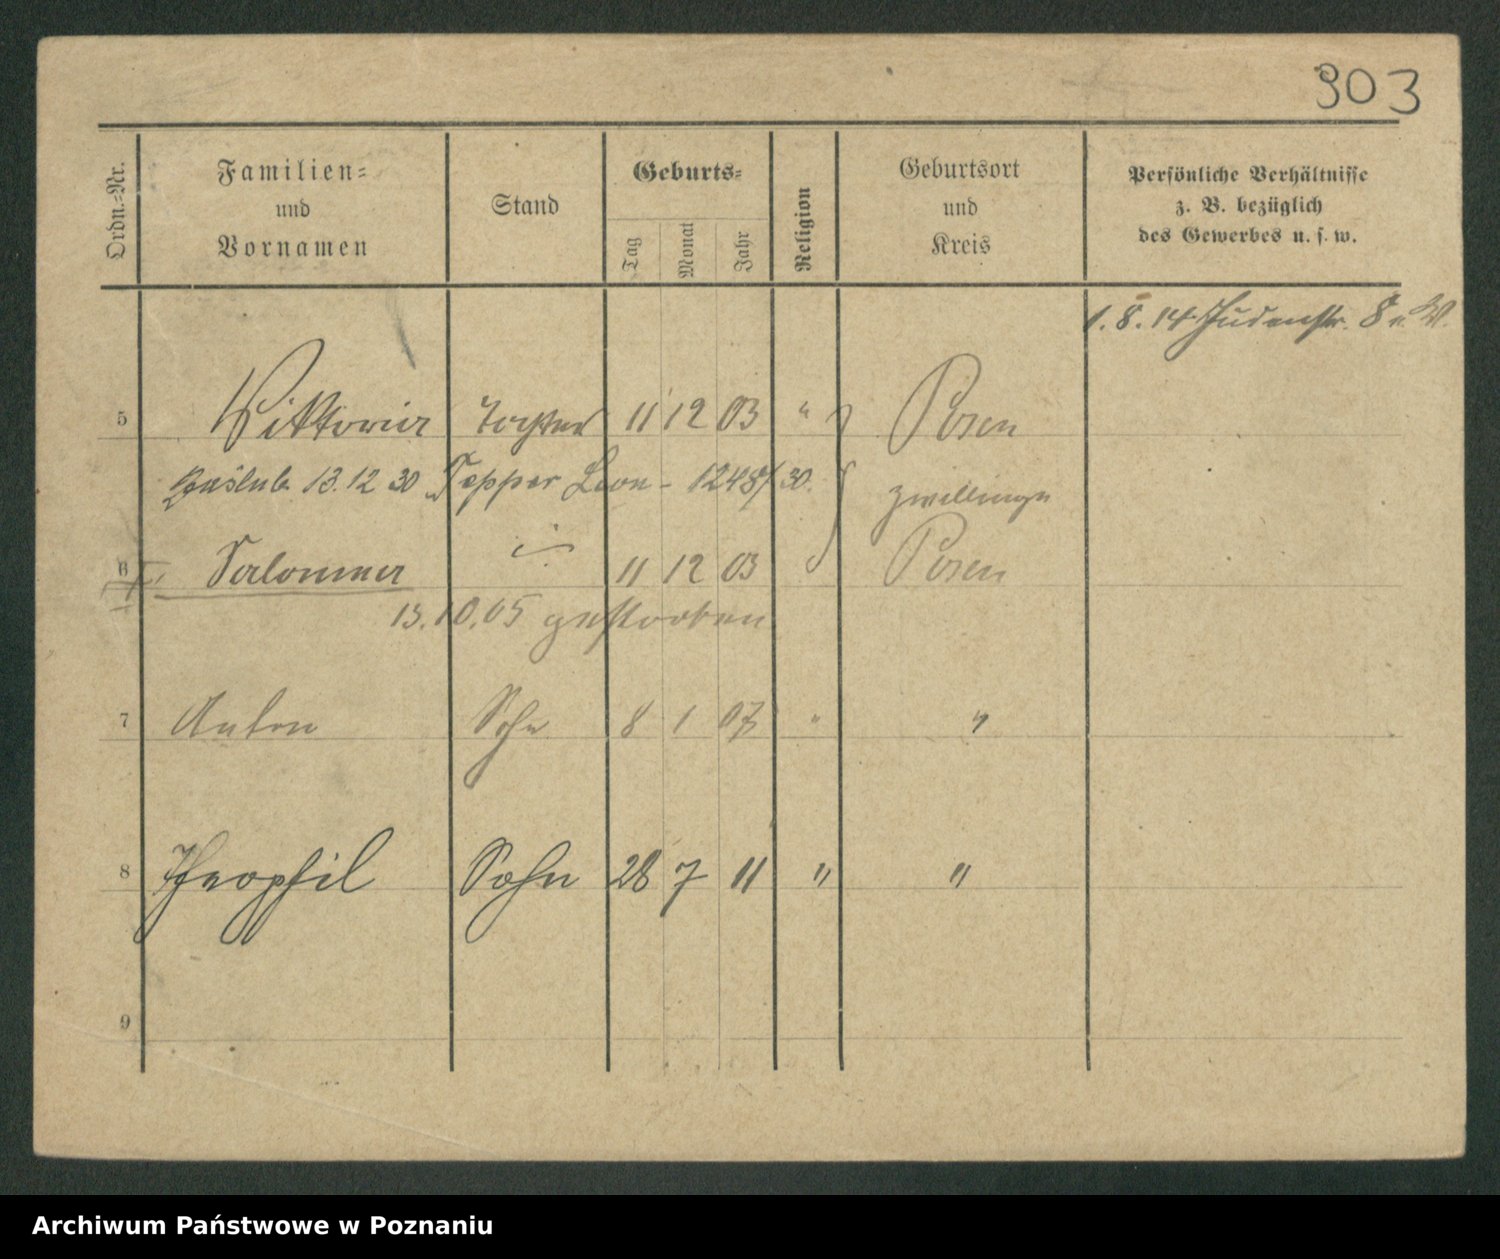 903
Ordn.-Nr. Familien- und Vornamen Stand Geburts- Tag Monat Jahr Religion Geburtsort und Kreis Persönliche Verhältnisse z. B. bezüglich des Gewerbes u. s. w.
1. 8. 14 Judenstr. 8 b. W.
5 Viktoria Tochter 11 12 03 " Posen
zaślub. 13.12 30 Tepper Leon - 1248/30. Zwillinge
6 Salomea 11 12 03 Posen
13.10.05 gestorben
7 Anton Sohn 8 1 07 " "
8 Theophil Sohn 28 7 11 " "
9
Archiwum Państwowe w Poznaniu